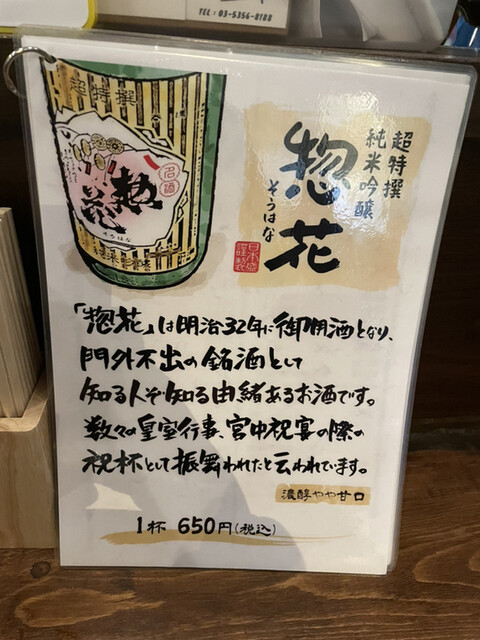 TEL : 03-5356-8188
超特撰
惣花
そうはな
超特撰
純米吟醸
惣花
そうはな
日本盛
謹製
「惣花」は明治32年に御用酒となり、
門外不出の銘酒として
知る人ぞ知る由緒あるお酒です。
数々の皇室行事、宮中祝宴の際の
祝杯として振舞われたと云われています。
濃醇やや甘口
1杯 650円(税込)